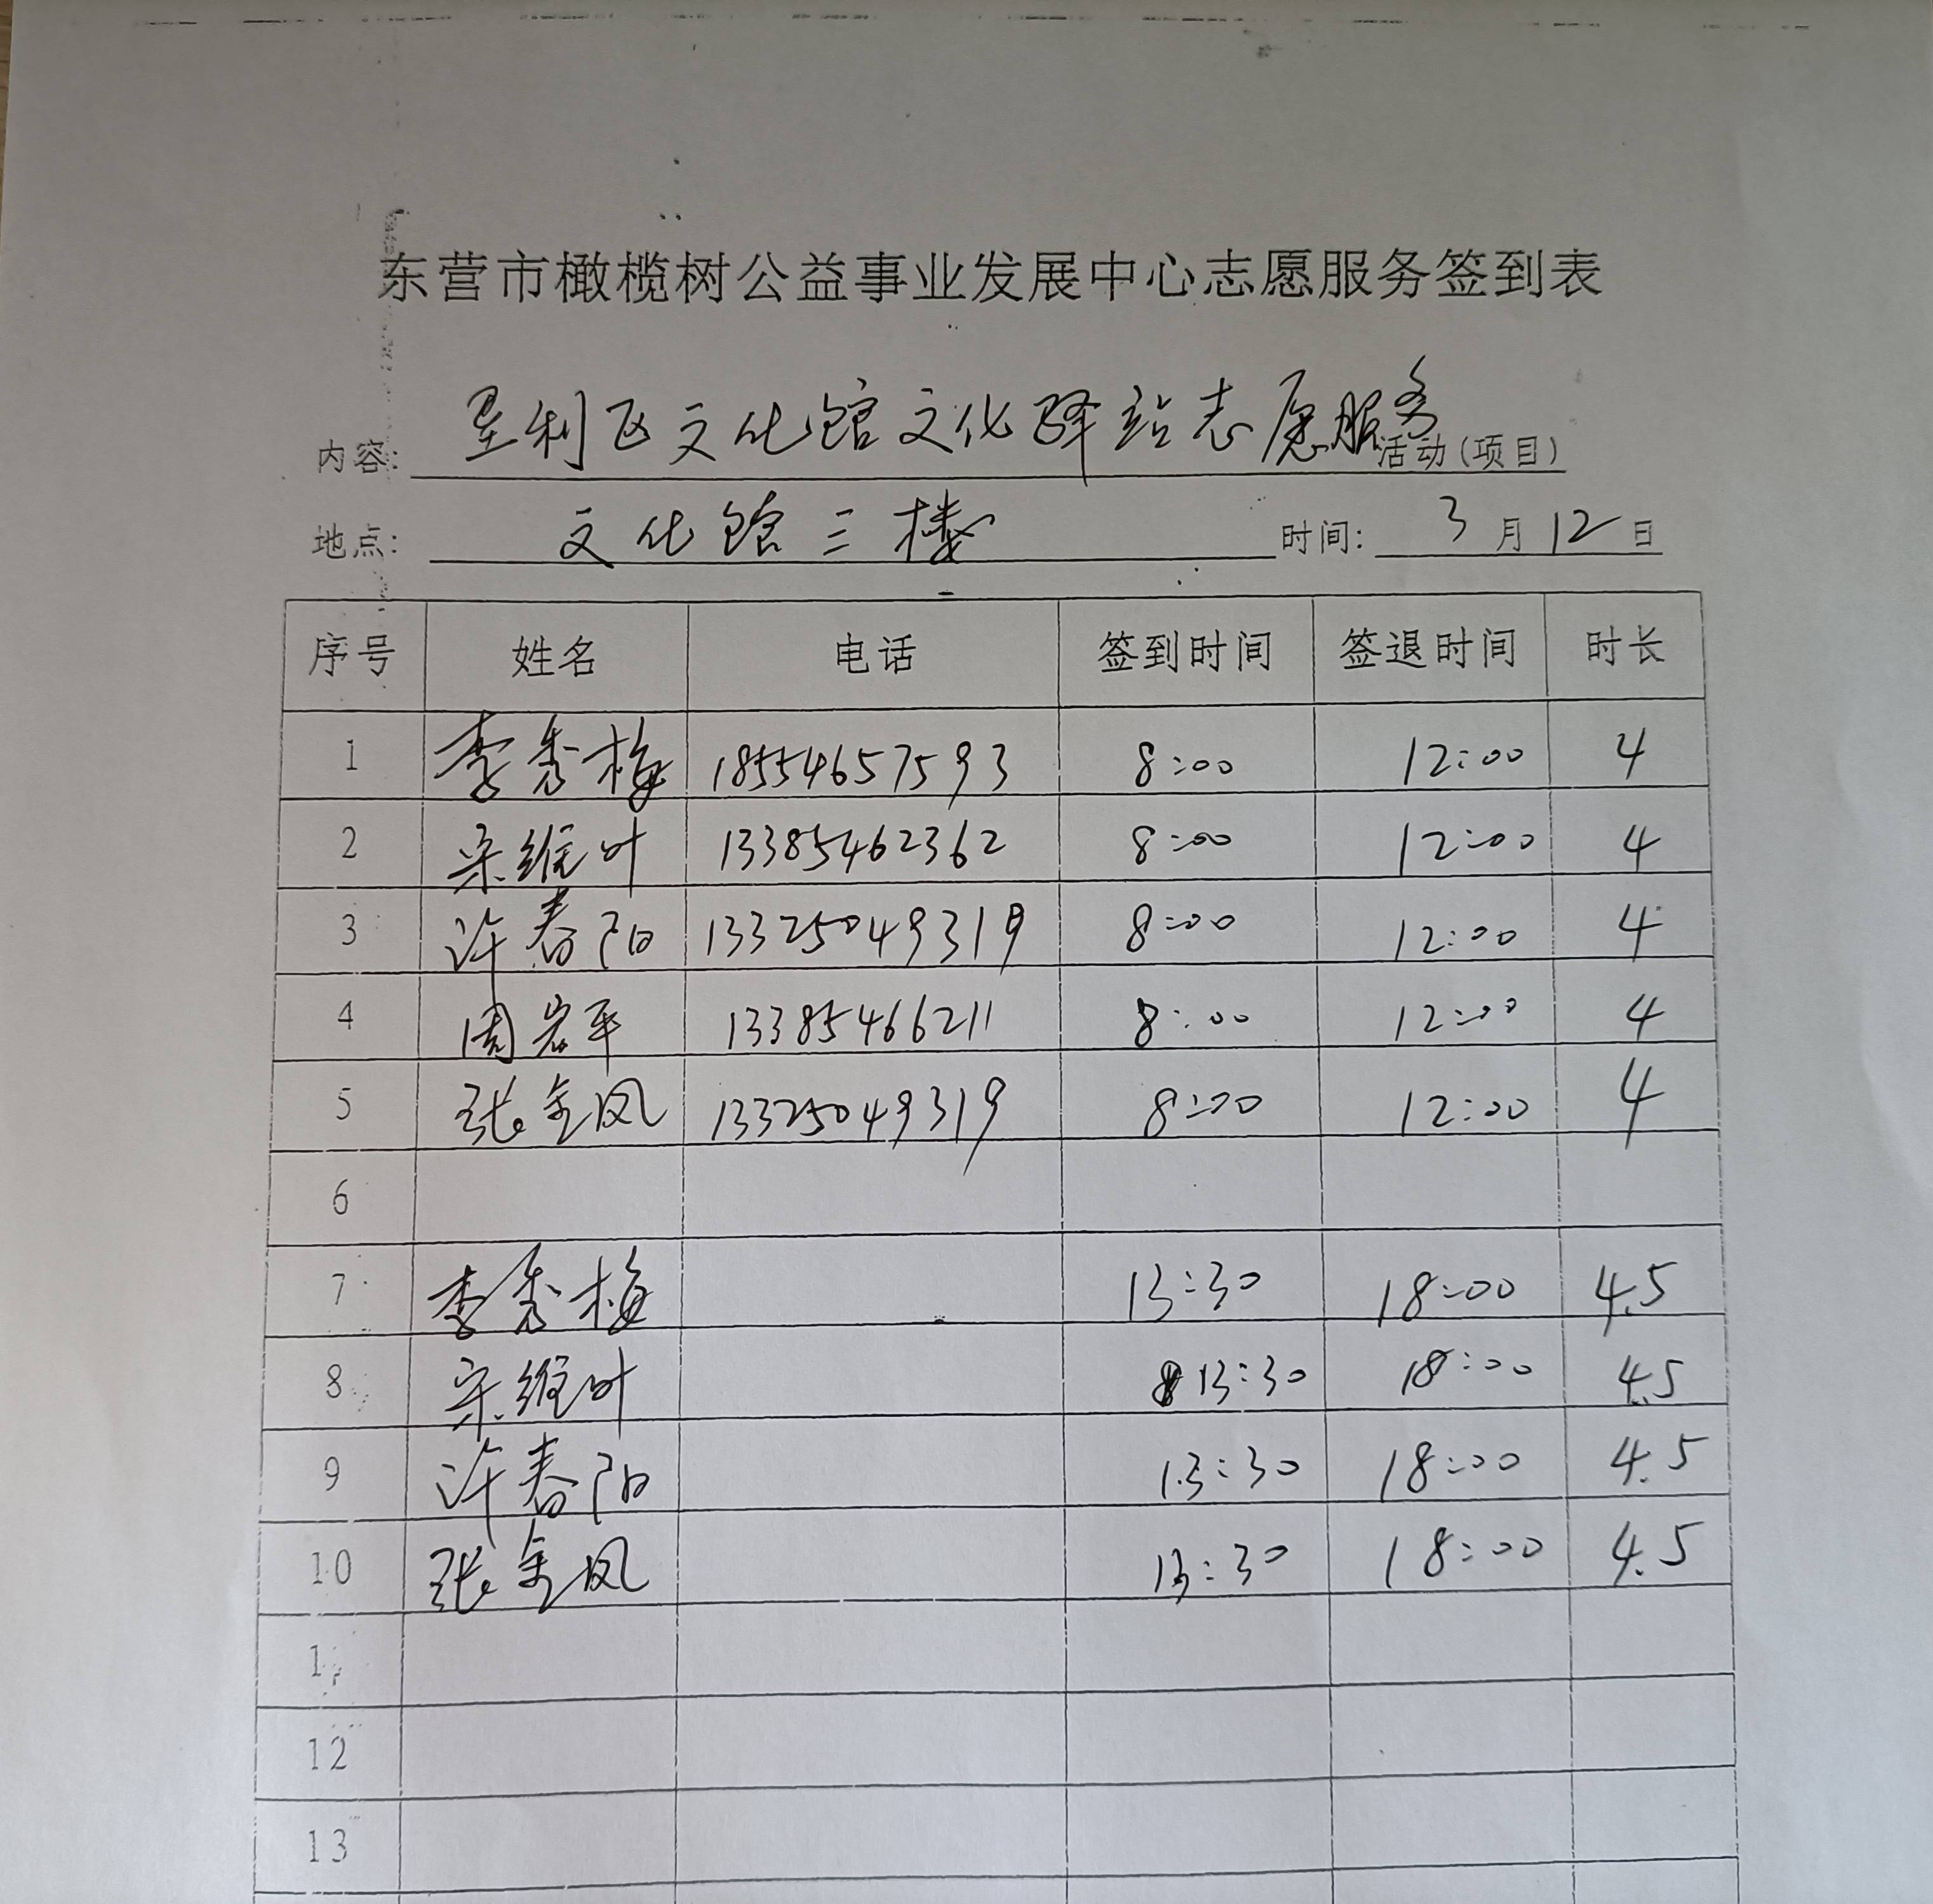 东营市橄榄树公益事业发展中心志愿服务签到表
内容: 垦利区文化馆文化驿站志愿服务活动(项目)
地点: 文化馆三楼 时间: 3月12日
序号 姓名 电话 签到时间 签退时间 时长
1 李秀梅 18554657593 8:00 12:00 4
2 宋维叶 13385462362 8:00 12:00 4
3 许春阳 13325049319 8:00 12:00 4
4 周岩平 13385466211 8:00 12:00 4
5 张金凤 13325049319 8:00 12:00 4
6
7 李秀梅 13:30 18:00 4.5
8 宋维叶 13:30 18:00 4.5
9 许春阳 13:30 18:00 4.5
10 张金凤 13:30 18:00 4.5
12
13